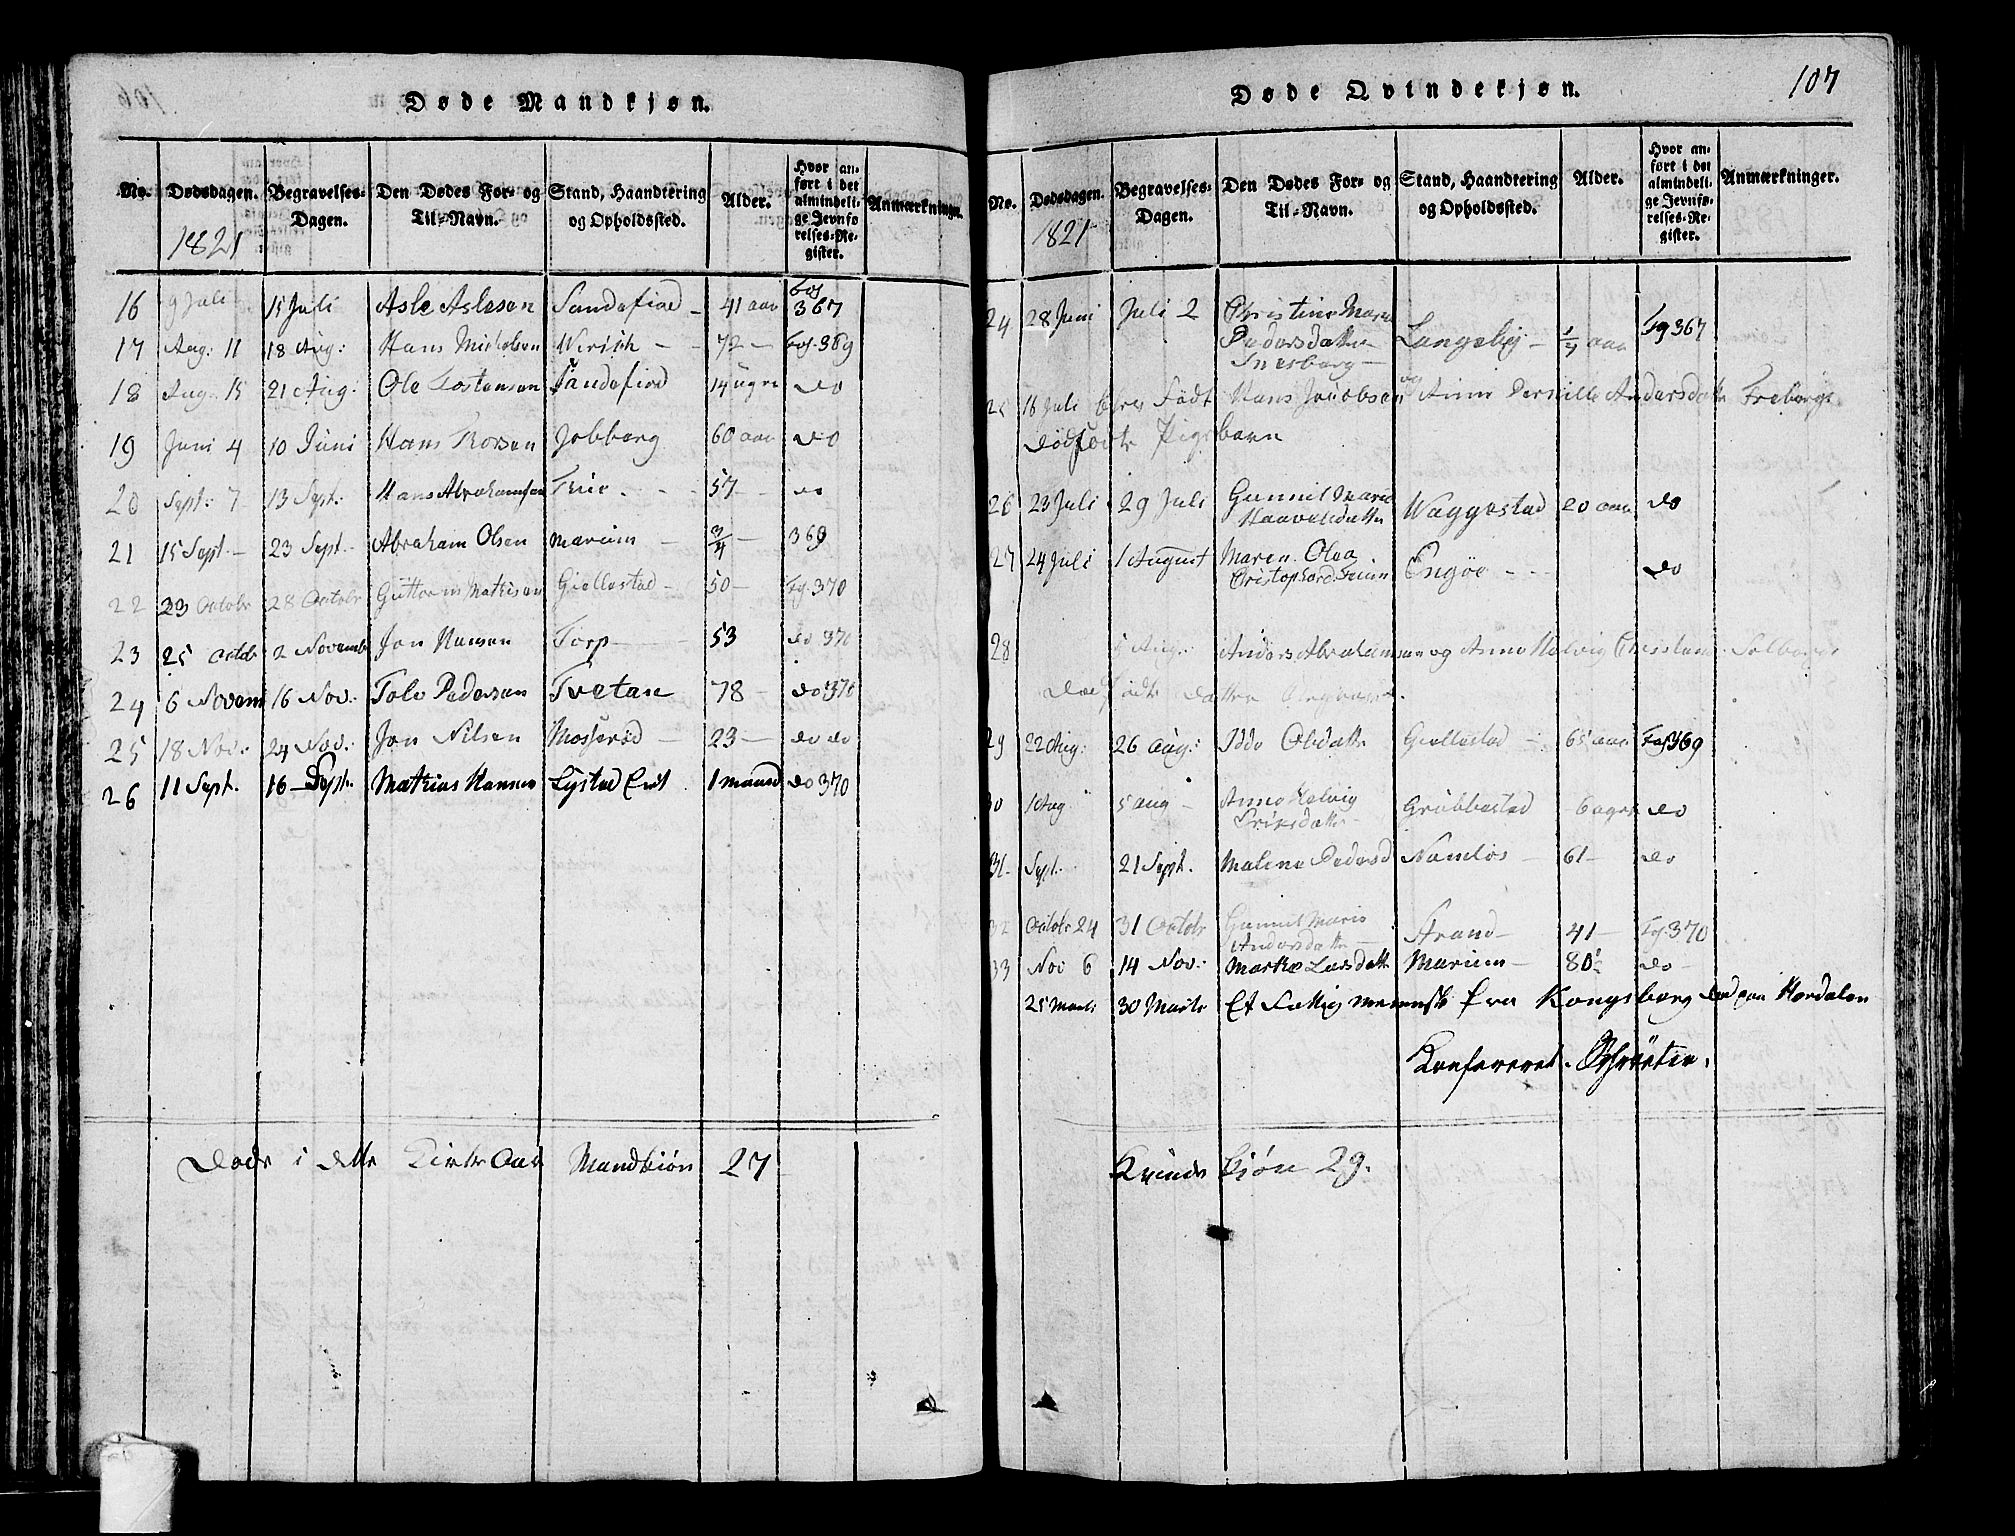 Døde Mandkjøn.
No. Dødsdagen. Begravelses-Dagen. Den Dødes For- og Til-Navn. Stand, Haandtering og Opholdssted. Alder. Hvor anført i det almindelige Jevnførelses-Register. Anmærkninger.
1821
16 9 Juli 15 Juli Asle Aslesen Sandefiord - 41 aar Fol 367
17 Aug: 11 18 Aug: Hans Michelsen Virik - - 72 - Fol. 369
18 Aug. 15 21 Aug: Ole Tostensen Sandefiord 14 uger do
19 Juni 4 10 Juni Hans Thorsen Jobberg 60 aar do
20 Sept: 7 13 Sept: Hans Abrahamsen 57 - do
21 15 Sept - 23 Sept. Abraham Olsen Marium - 3/4 - 369
22 23 Octobr 28 Octobr Guttorm Mathisen Giellestad - 50 - Fg. 370
23 25 Octobr 2 Novemb Jon Hansen Torp 53 do 370
24 6 Novem 16 Nov: Tolv Pedersen Tvetan 78 - do 370
25 18 Nov: 24 Nov: Jon Nilsen Mosserød - 23 - do do
26 11 Sept. 16 - Sept. Mathias Hansen Lystad 1 maaned do 370
Døde i dette Kirke Aar Mandkiøn 27
Døde Qvindekjøn.
107
No. Dødsdagen. Begravelses-Dagen. Den Dødes For- og Til-Navn. Stand, Haandtering og Opholdssted. Alder. Hvor anført i det almindelige Jevnførelses-Register. Anmærkninger.
1821
24 28 Juni Juli 2 Christine Marie
Pedersdatter Langeby - aar Fg 367
25 16 Juli Født Hans Jacobsen og Anne Pernille Andersdatter Freberg
dødfødte Pigebarn
26 23 Juli 29 Juli Gunnil Marie
Haavelsdatter Waggestad 20 aar do
27 24 Juli 1 August Maren Olea
Engøe - - do
28 5 Aug: Anders Abrahamsen og Anne Helvig
dødfødte datter
29 22 Aug: 26 Aug: Olsdatter Giellestad - 65 aar Fol 369
30 1 Aug 5 aug - Anne Helvig
Ericsdatter - Grubbestad 6 uger do
31 - Sept. 21 Sept. Malene Pedersd Namløs - 61 - do
32 Octobr 24 31 Octobr Gunnil Marie
Andersdatter - Strand - 41 - Fg. 370
33 Nov 6 14 Nov: Marthe Larsdatter Marium - 80 do
25 Marts 30 Marts Et Fattig menniske fra Kongsberg død paa Hordalen
Confereret.
Kvinde kjøn 29.